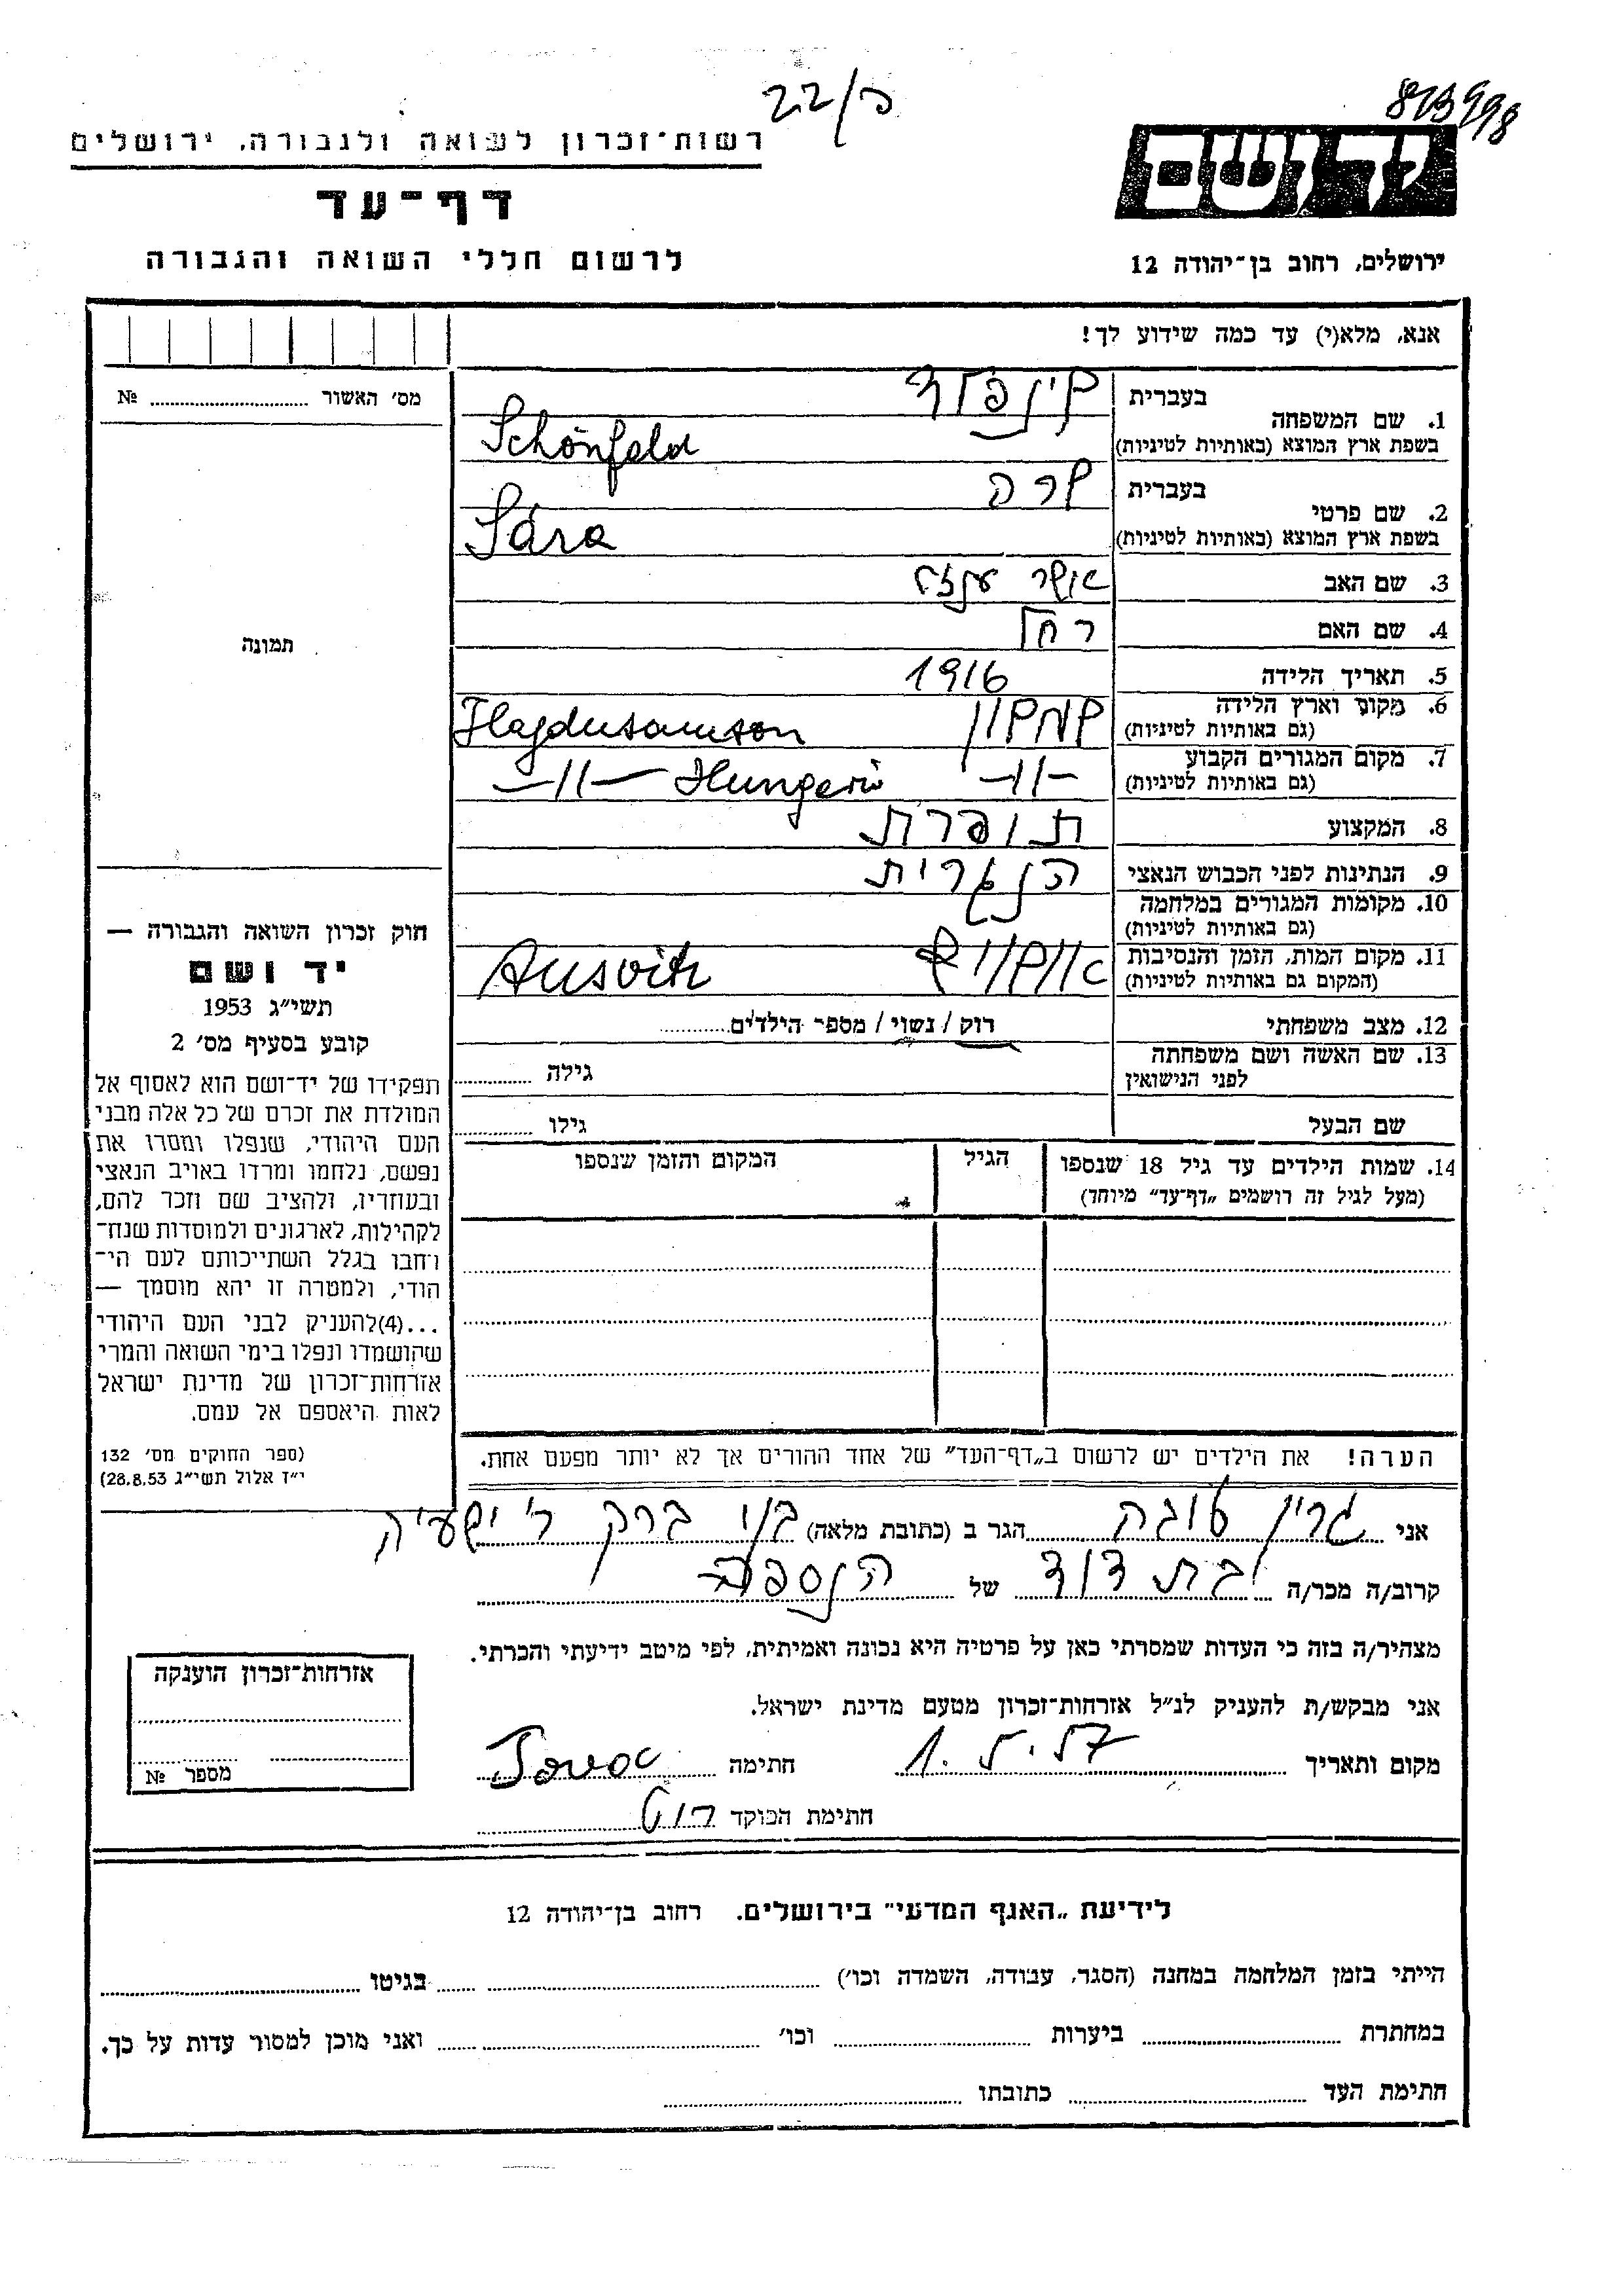 22/כ
רשות־זכרון לשואה ולגבורה, ירושלים
דף־עד
לרשום חללי השואה והגבורה
יד ושם
ירושלים, רחוב בן־יהודה 12
אנא, מלא(י) עד כמה שידוע לך!
מס׳ האשור № 
1. שם המשפחה
בעברית שינפלד
בשפת ארץ המוצא (באותיות לטיניות) Schönfeld
2. שם פרטי
בעברית שרה
בשפת ארץ המוצא (באותיות לטיניות) Sára
3. שם האב אשר
4. שם האם רחל
5. תאריך הלידה 1916
6. מקום וארץ הלידה שמשון
(גם באותיות לטיניות) Hajdusamson
7. מקום המגורים הקבוע -וו-
(גם באותיות לטיניות) -וו- Hungeriú
8. המקצוע תופרת
9. הנתינות לפני הכבוש הנאצי הנגרית
10. מקומות המגורים במלחמה
(גם באותיות לטיניות)
11. מקום המות, הזמן והנסיבות אוושוויץ
(המקום גם באותיות לטיניות) Ausvitz
12. מצב משפחתי רוק / נשוי / מספר הילדים
13. שם האשה ושם משפחתה
לפני הנישואין גילה
שם הבעל גילו
14. שמות הילדים עד גיל 18 שנספו הגיל המקום והזמן שנספו
(מעל לגיל זה רושמים „דף־עד״ מיוחד)
הערה! את הילדים יש לרשום ב„דף־העד״ של אחד ההורים אך לא יותר מפעם אחת.
תמונה
חוק זכרון השואה והגבורה —
יד ושם
תשי״ג 1953
קובע בסעיף מס׳ 2
תפקידו של יד־ושם הוא לאסוף אל
המולדת את זכרם של כל אלה מבני
העם היהודי, שנפלו ומסרו את
נפשם, נלחמו ומרדו באויב הנאצי
ובעוזריו, ולהציב שם וזכר להם,
לקהילות, לארגונים ולמוסדות שנח־
רבו בגלל השתייכותם לעם הי־
הודי, ולמטרה זו יהא מוסמך —
...(4)להעניק לבני העם היהודי
שהושמדו ונפלו בימי השואה והמרי
אזרחות־זכרון של מדינת ישראל
לאות היאספם אל עמם.
(ספר החוקים מס׳ 132
י״ז אלול תשי״ג 28.8.53)
אני גרין טובה הגר ב (כתובת מלאה) בני ברק ר׳ ישעיה
קרוב/ה מכר/ה בת דוד של הנספה
מצהיר/ה בזה כי העדות שמסרתי כאן על פרטיה היא נכונה ואמיתית, לפי מיטב ידיעתי והכרתי.
אני מבקש/ת להעניק לנ״ל אזרחות־זכרון מטעם מדינת ישראל.
מקום ותאריך חתימה
חתימת הפוקד רוט
אזרחות־זכרון הוענקה
מספר №
לידיעת „האגף המדעי״ בירושלים, רחוב בן־יהודה 12
הייתי בזמן המלחמה במחנה (הסגר, עבודה, השמדה וכו׳) בגיטו
במחתרת ביערות וכו׳ ואני מוכן למסור עדות על כך.
חתימת העד כתובתו